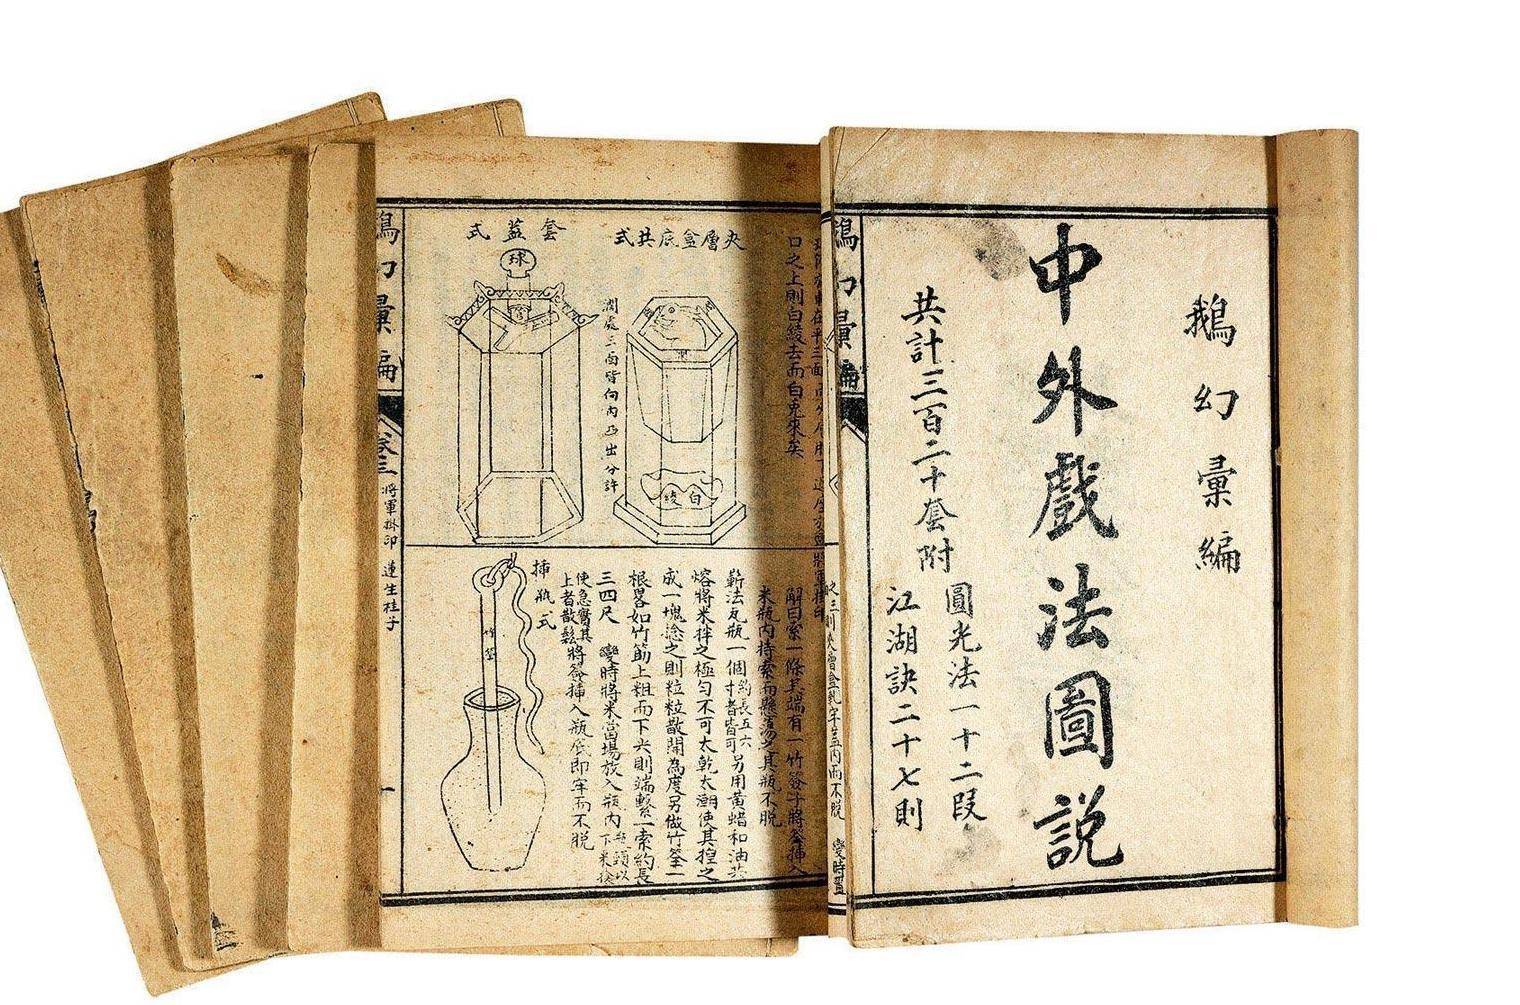 鵝幻彙編
中外戲法圖説
共計三百二十套附
圓光法一十二段
江湖訣二十七則
鵝幻彙編
口之上則白綾去而白兎來矣
夾層盒底共式
白綾
濶處三面皆向內凸出分許
套蓋式
球
將軍掛印
解曰索一條其端有一竹簽子將簽插入
米瓶內持索而懸蕩之其瓶不脫
斬法瓦瓶一個寸者皆可約長五六另用黃蠟和油
熔將米拌之極勻不可太乾太潮使其揑之
成一塊淰之則粒粒散開為度另做竹筌一
根畧如竹筯上粗而下尖則端繫一索約長
三四尺 變時將米當場放入瓶內
使急需其
上者散鬆將簽插入瓶底即牢而不脫
插瓶式
竹筌
鵝幻彙編
卷三
將軍掛印 蓮生桂子